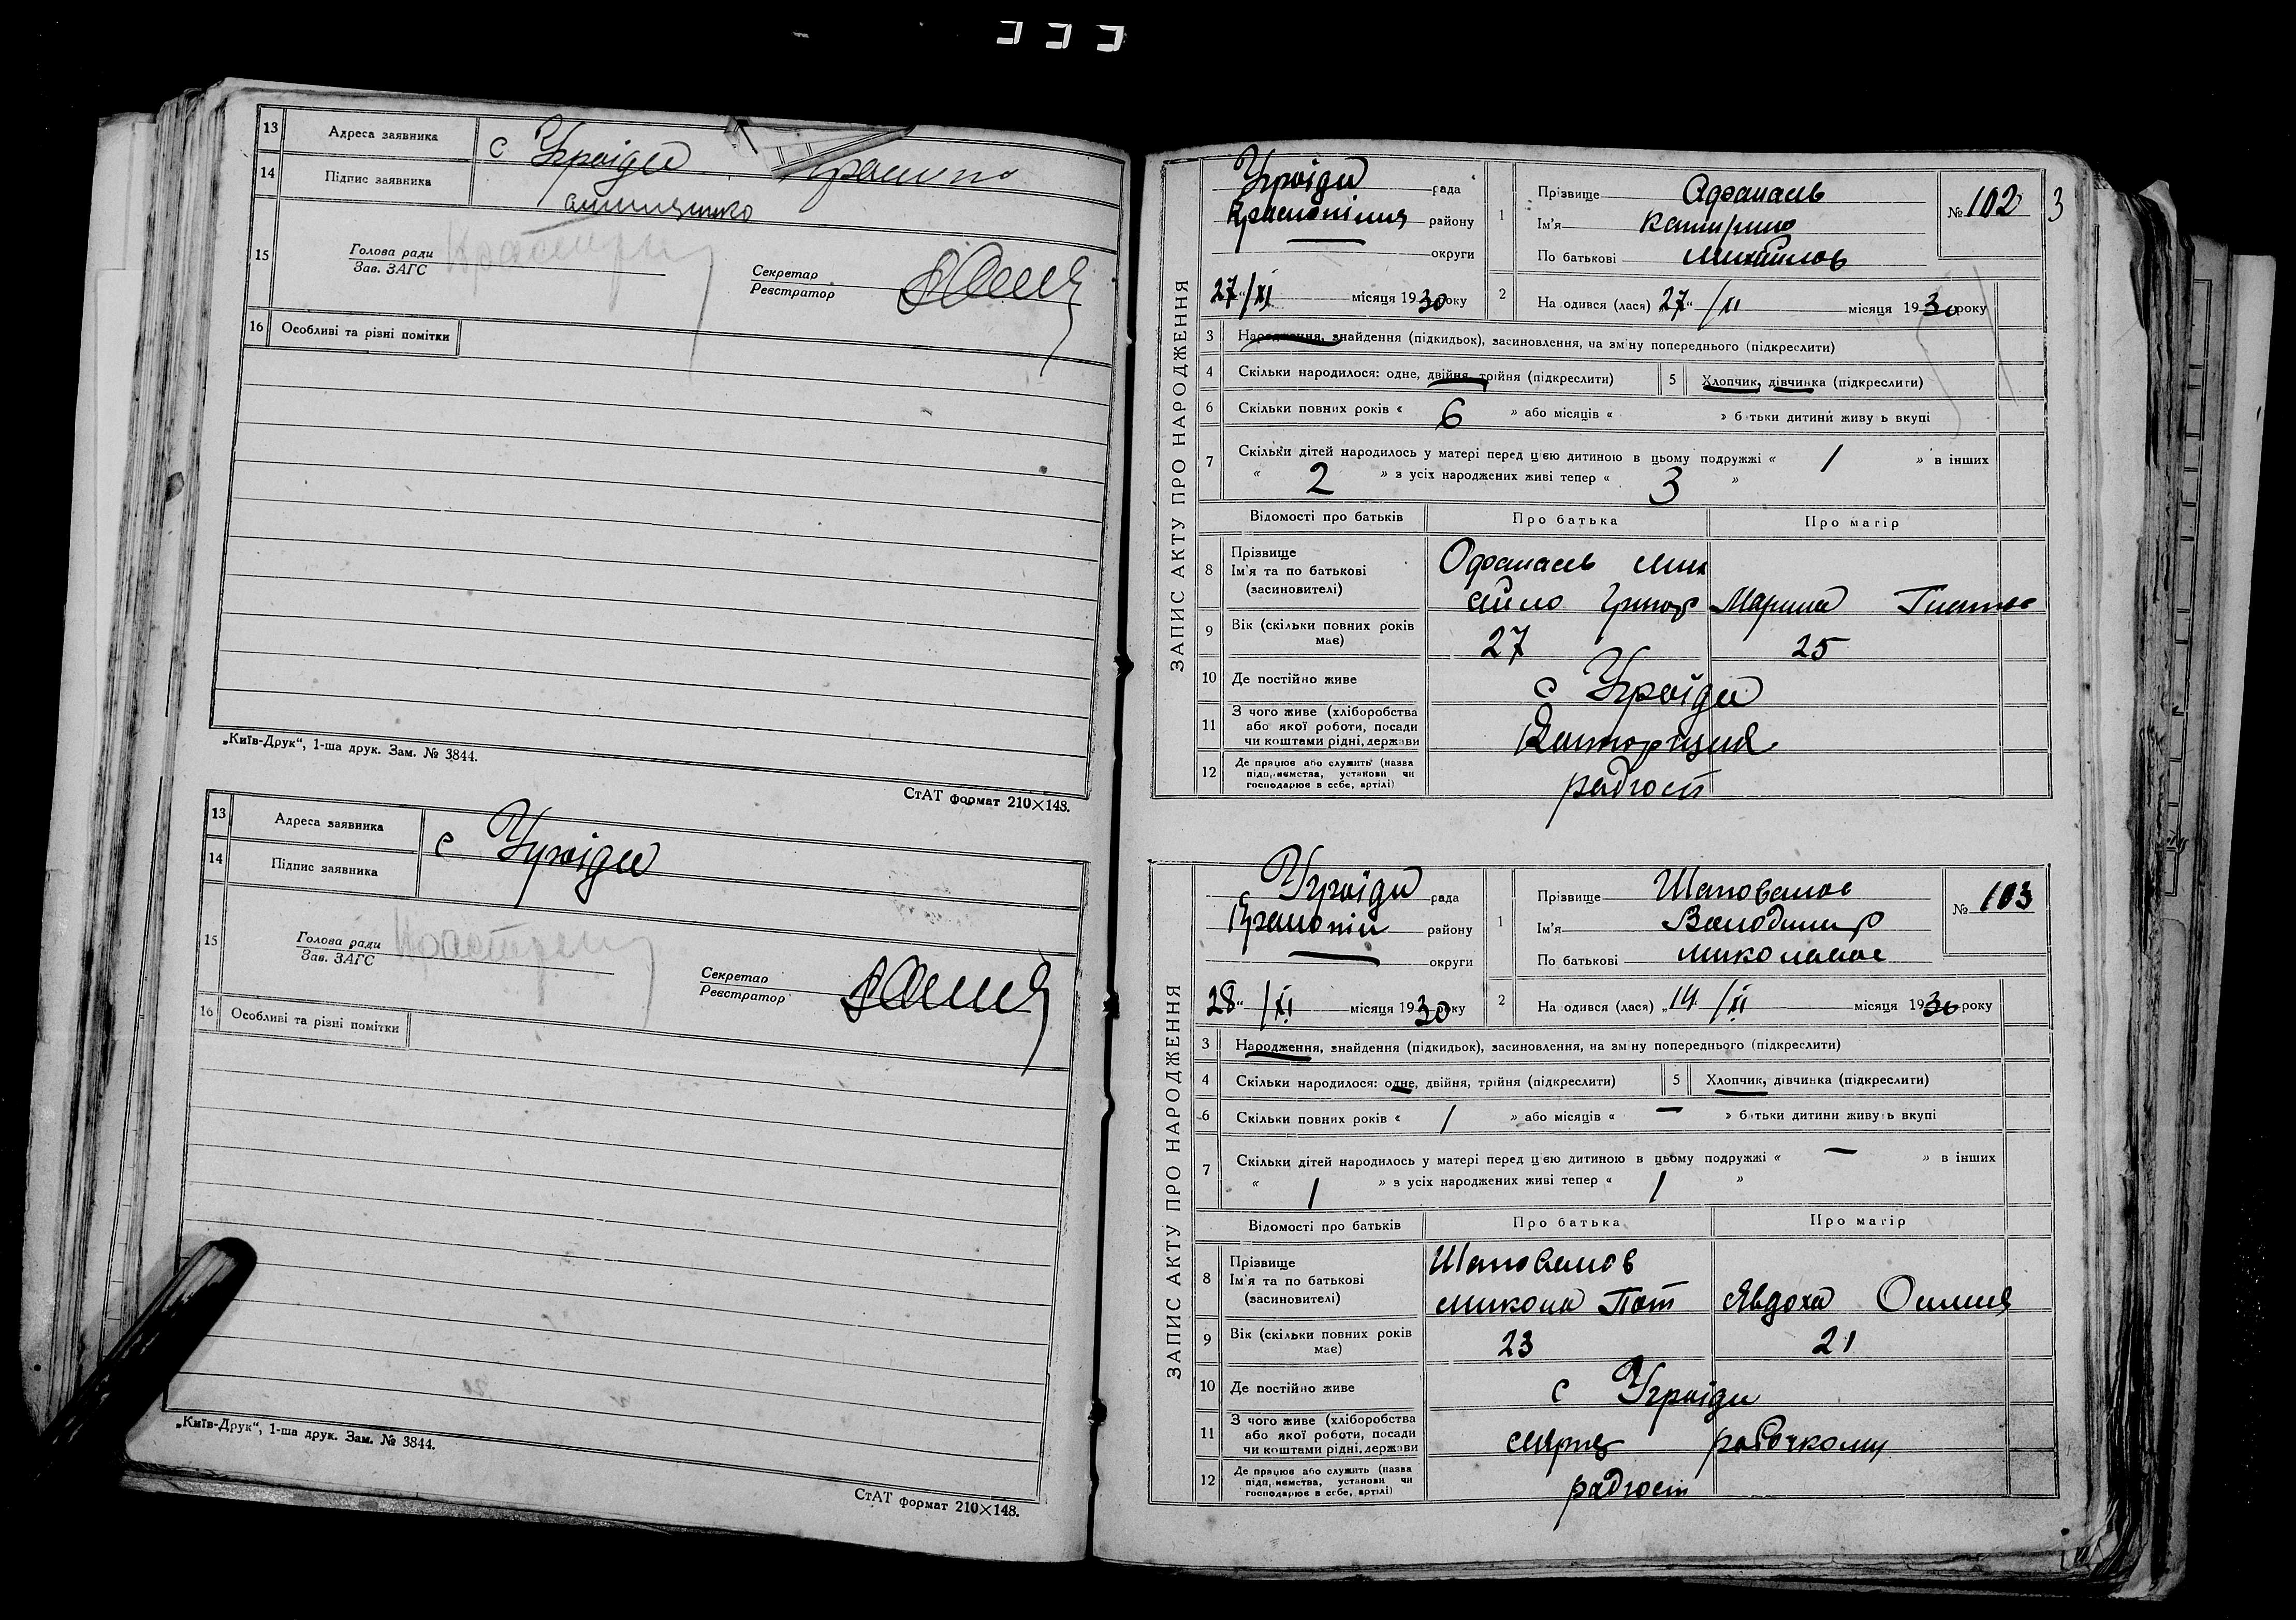 13 Адреса заявника с Угроїди
14 Підпис заявника
15 Голова ради
Зав. ЗАГС
Секретар
Реєстратор
16 Особливі та різні помітки
„Київ-Друк“, 1-ша друк. Зам. № 3844.
СтАТ формат 210×148.
13 Адреса заявника с Угроїди
14 Підпис заявника
15 Голова ради
Зав. ЗАГС
Секретар
Реєстратор
16 Особливі та різні помітки
„Київ-Друк“, 1-ша друк. Зам. № 3844.
СтАТ формат 210×148.
ЗАПИС АКТУ ПРО НАРОДЖЕННЯ
Угроїди рада
Краснопілля району
округи
27“ /XI місяця 1930 року
1 Прізвище Офанасьев
Ім'я Катирина
По батькові Михайлов
№ 102
3
2 На одився (лася) 27“ /XI місяця 1930 року
3 Народження, знайдення (підкидьок), засиновлення, на зміну попереднього (підкреслити)
4 Скільки народилося: одне, двійня, трійня (підкреслити)
5 Хлопчик, дівчинка (підкреслити)
6 Скільки повних років « 6 » або місяців « » батьки дитини живуть вкупі
7 Скільки дітей народилось у матері перед цією дитиною в цьому подружжі « 1 » в інших
« 2 » з усіх народжених живі тепер « 3 »
Відомості про батьків Про батька Про матір
8 Прізвище
Ім'я та по батькові
(засиновителі)
Офанасьев Мих
айло Григор Марина
9 Вік (скільки повних років має) 27 25
10 Де постійно живе с Угроїди
11 З чого живе (хліборобства
або якої роботи, посади
чи коштами рідні, держави
12 Де працює або служить (назва
підприємства, установи чи
господарює в себе, артілі)
радгосп
ЗАПИС АКТУ ПРО НАРОДЖЕННЯ
Угроїди рада
Краснопіл району
округи
28“ /XI місяця 1930 року
1 Прізвище Шаповалов
Ім'я Володимир
По батькові Миколаєв
№ 103
2 На одився (лася) „14 /XI місяця 1930 року
3 Народження, знайдення (підкидьок), засиновлення, на зміну попереднього (підкреслити)
4 Скільки народилося: одне, двійня, трійня (підкреслити)
5 Хлопчик, дівчинка (підкреслити)
6 Скільки повних років « 1 » або місяців « — » батьки дитини живуть вкупі
7 Скільки дітей народилось у матері перед цією дитиною в цьому подружжі « — » в інших
« 1 » з усіх народжених живі тепер « 1 »
Відомості про батьків Про батька Про матір
8 Прізвище
Ім'я та по батькові
(засиновителі)
Шаповалов
Микола Пот Явдоха
9 Вік (скільки повних років має) 23 21
10 Де постійно живе с Угроїди
11 З чого живе (хліборобства
або якої роботи, посади
чи коштами рідні, держави
робочкому
12 Де працює або служить (назва
підприємства, установи чи
господарює в себе, артілі)
радгосп